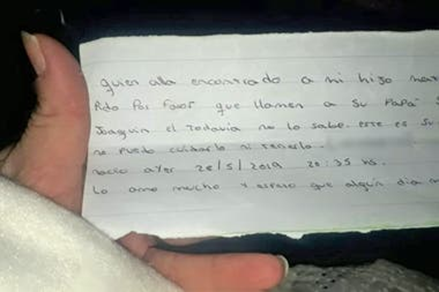 quien alla encontrado a mi hijo
Pido Por favor que llamen a su Papá
Joaquin el Todavia no lo sabe. este es su
no Puedo cuidarlo ni tenerlo.
nacio ayer 28/5/2019 20:35 hs.
Lo amo mucho y espero que algún dia